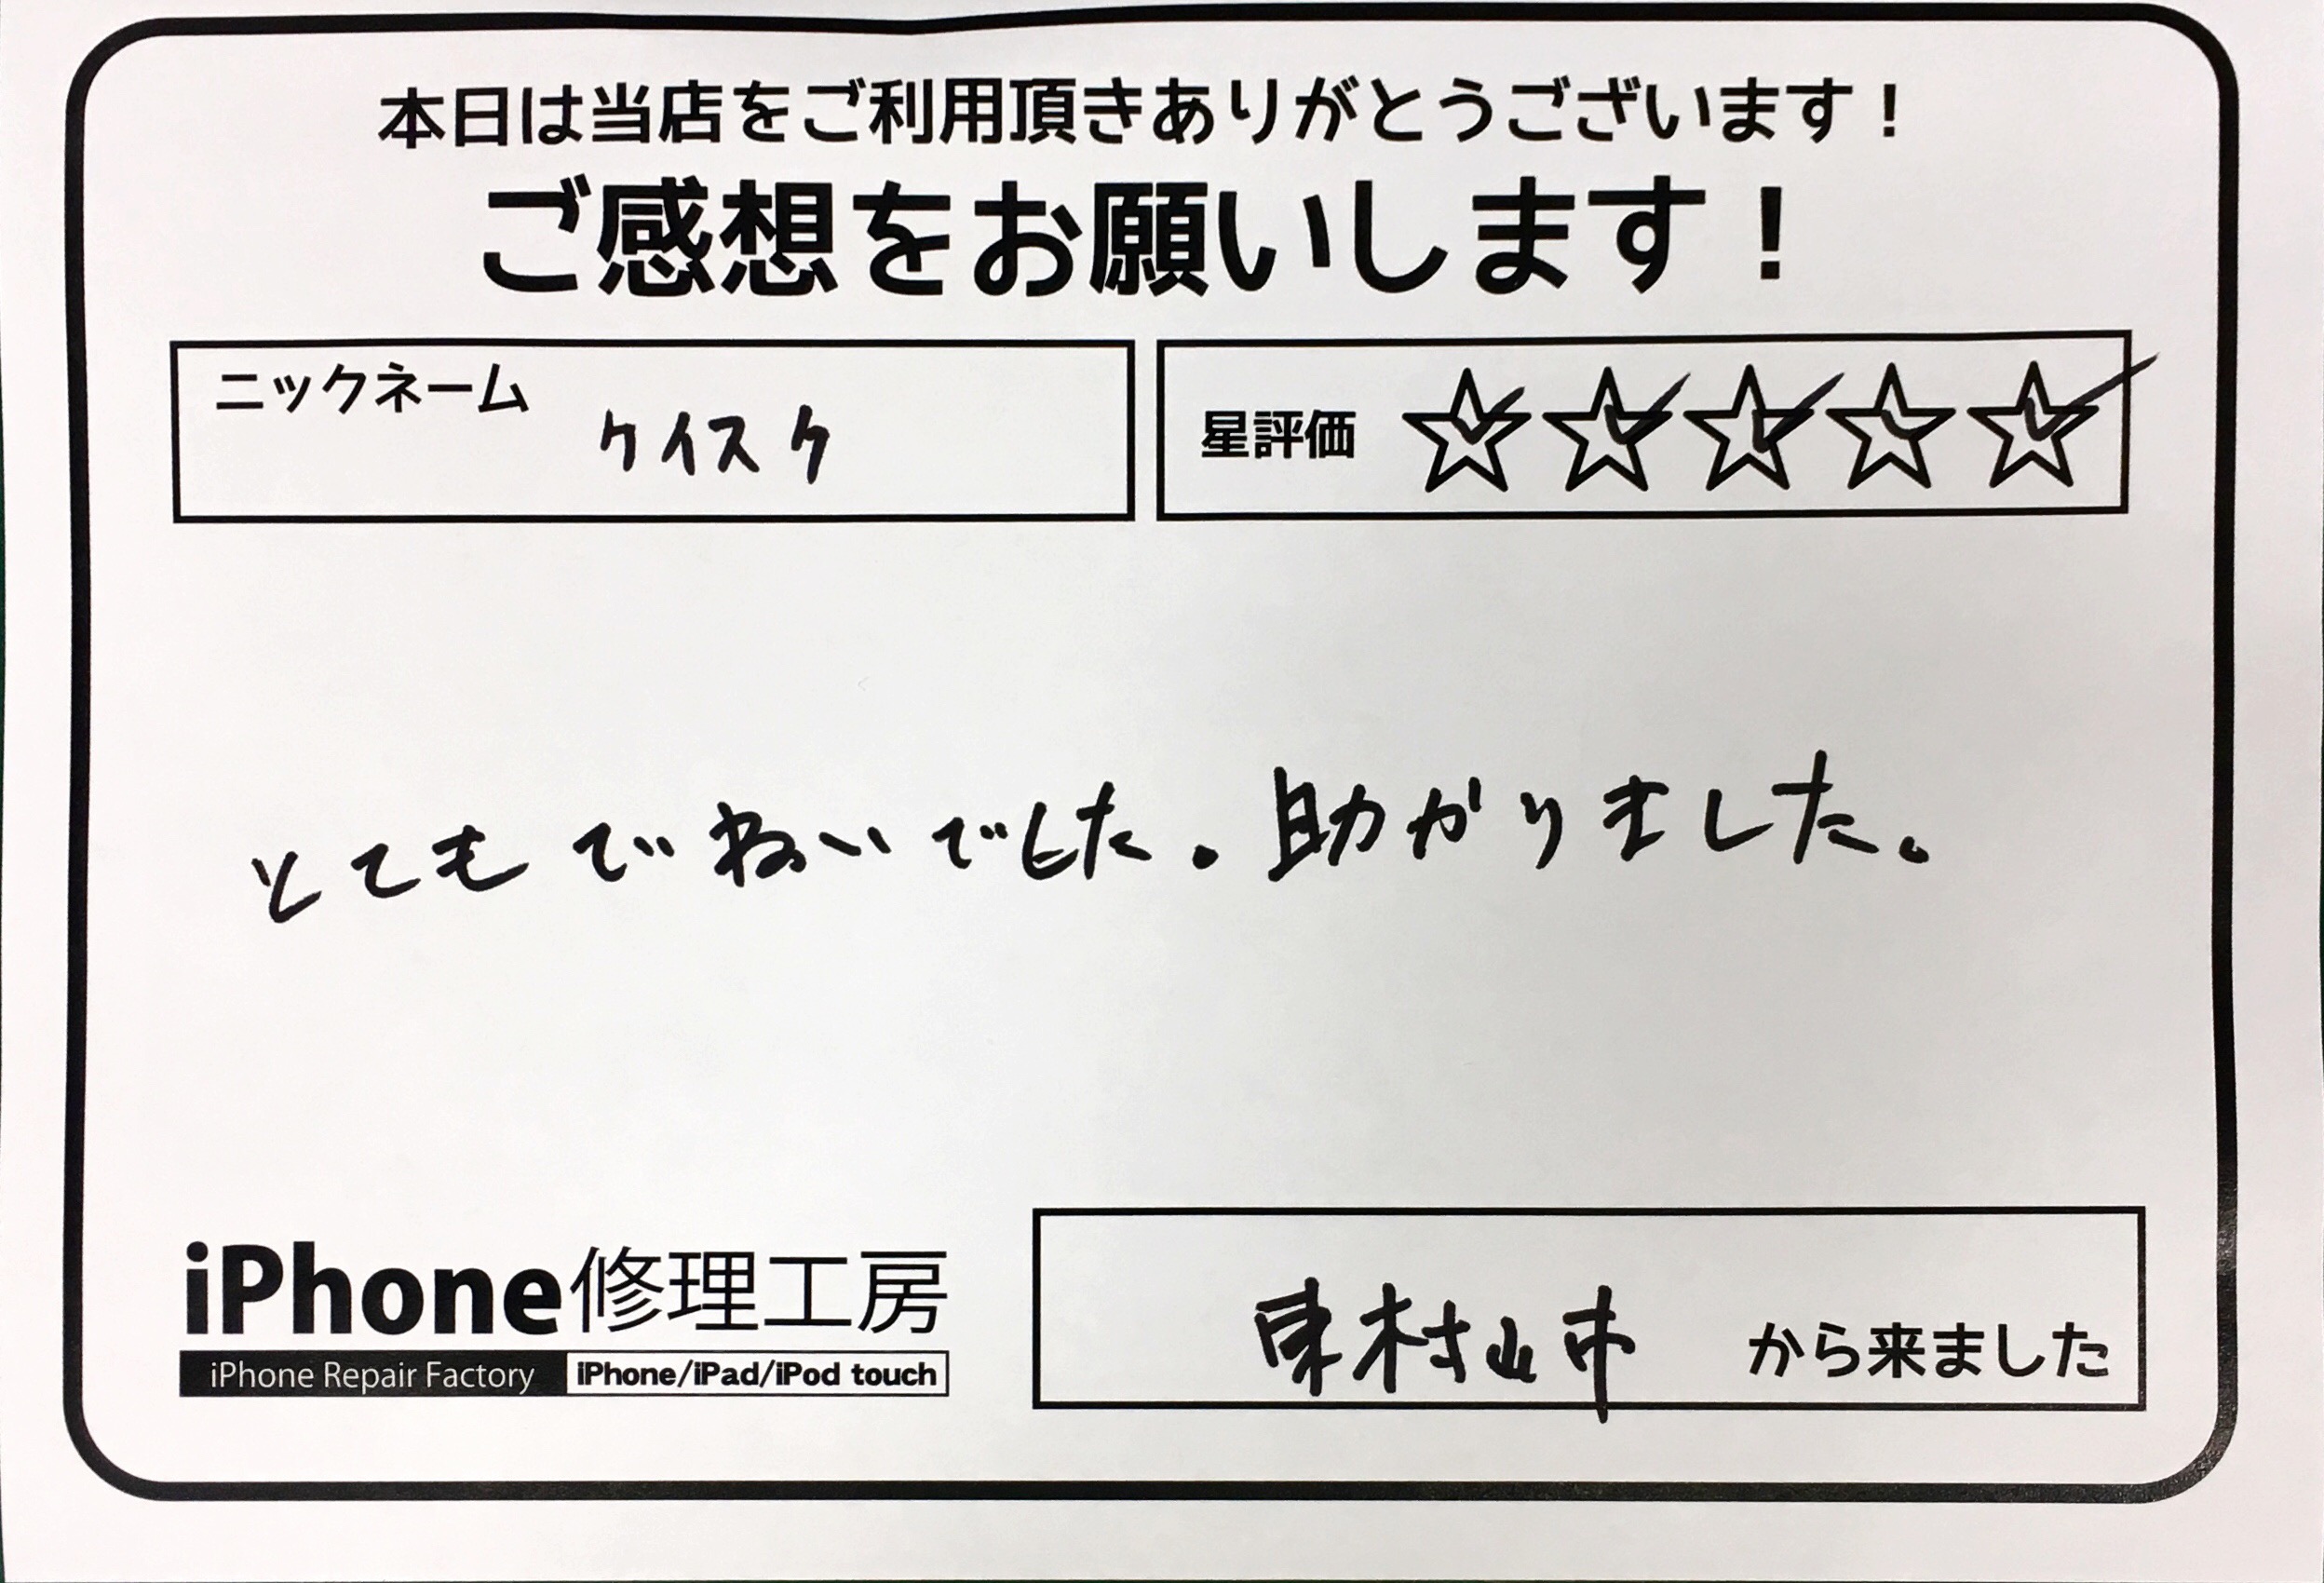 本日は当店をご利用頂きありがとうございます！
ご感想をお願いします！
ニックネーム ケイスケ
星評価 ☆☆☆☆☆
とてもでねいでした。助かりました。
iPhone修理工房
iPhone Repair Factory iPhone/iPad/iPod touch
東村山市 から来ました